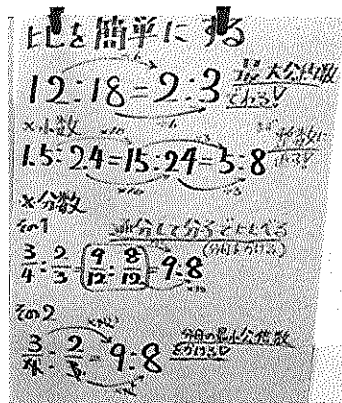 比を簡単にする
12:18=2:3 最大公約数
でわる!
※小数
1.5:2.4=15:24=5:8 整数に
※分数
その1 通分して分子どうしでくらべる
3/4:2/3=(9/12:8/12)=9:8
その2
3/4:2/3=9:8 分母の最小公倍数
をかける!